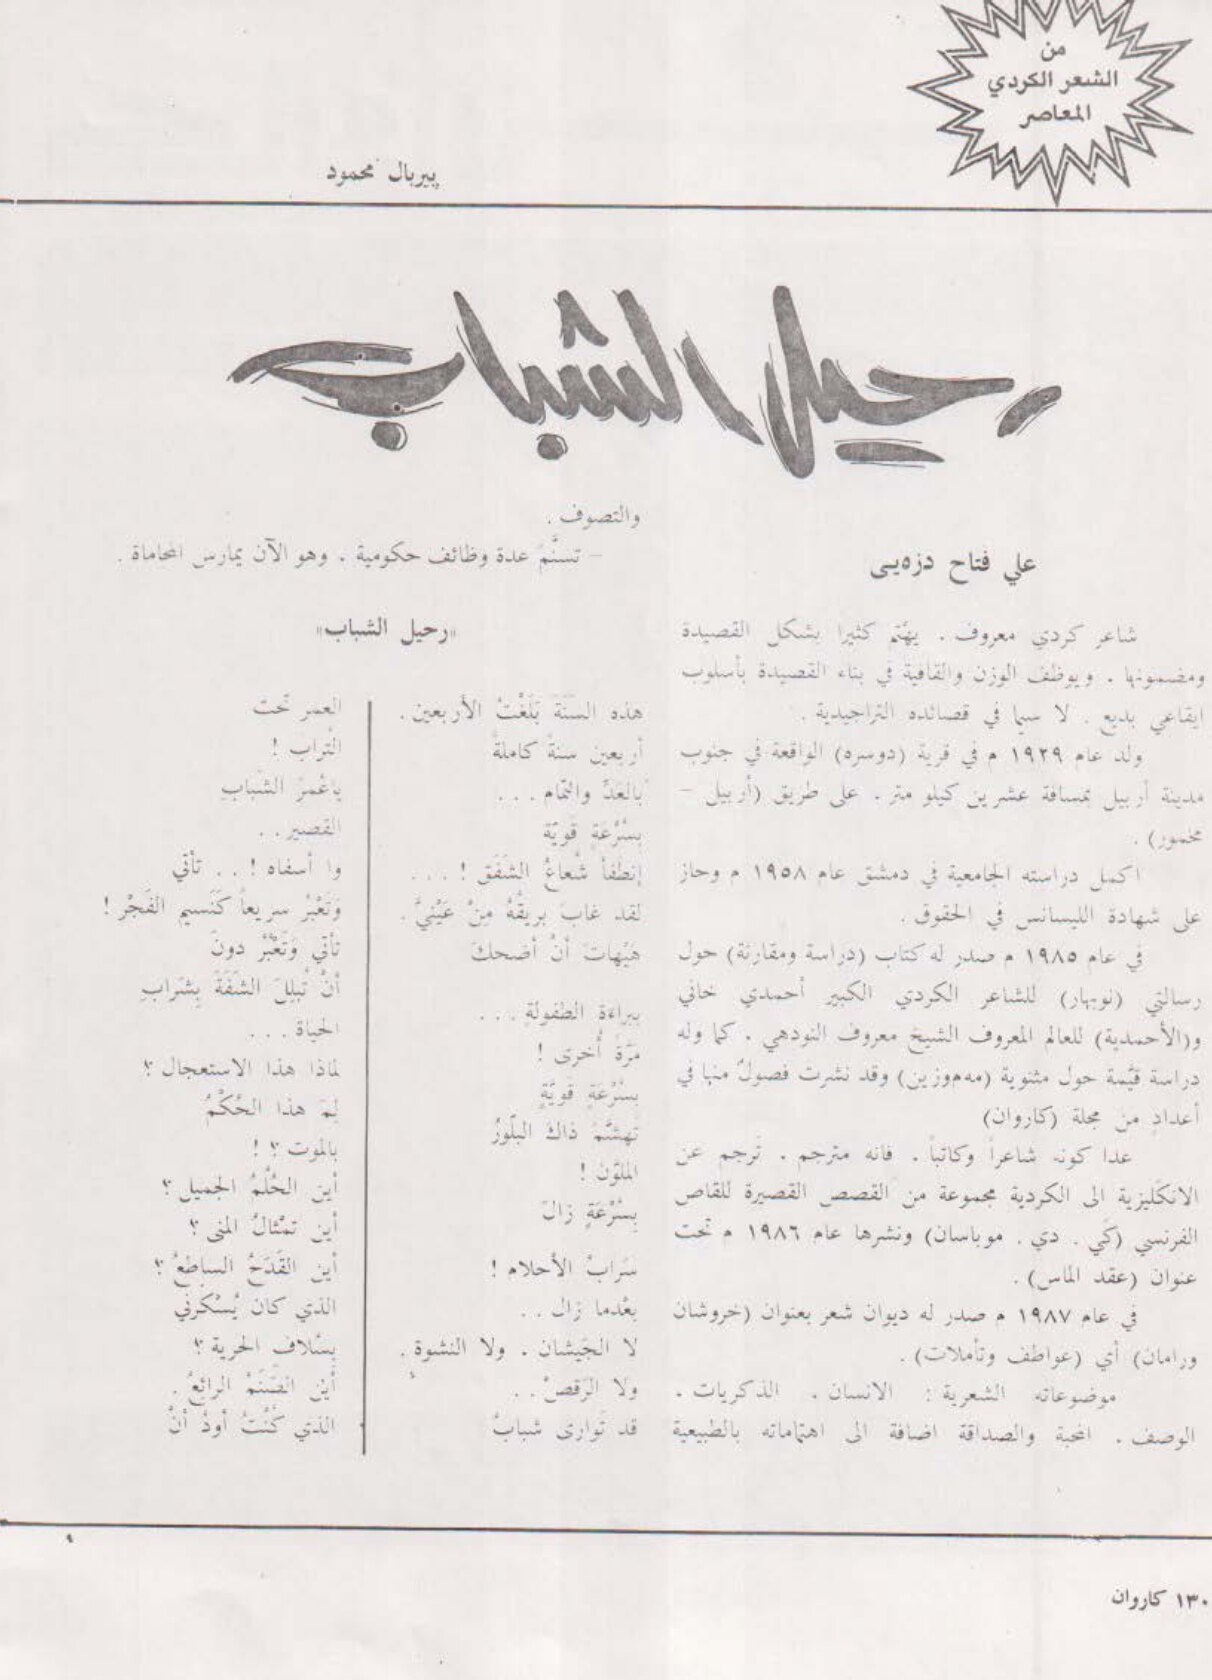 من
الشعر الكردي
المعاصر
پیربال محمود
رحيل الشباب
علي فتاح دزەیی
شاعر كردي معروف . يهتم كثيرا بشكل القصيدة
ومضمونها . ويوظف الوزن والقافية في بناء القصيدة بأسلوب
ايقاعي بديع . لا سيما في قصائده التراجيدية .
ولد عام ١٩٢٩ م في قرية (دوسره) الواقعة في جنوب
مدينة أربيل بمسافة عشرين كيلو متر . على طريق (أربيل –
مخمور) .
اكمل دراسته الجامعية في دمشق عام ١٩٥٨ م وحاز
على شهادة الليسانس في الحقوق .
في عام ١٩٨٥ م صدر له كتاب (دراسة ومقارنة) حول
رسالتي (نوبهار) للشاعر الكردي الكبير أحمدي خاني
و(الأحمدية) للعالم المعروف الشيخ معروف النودهي . كما وله
دراسة قيّمة حول مثنوية (مەم‌وزين) وقد نشرت فصولٌ منها في
أعدادٍ من مجلة (كاروان)
عدا كونه شاعراً وكاتباً . فانه مترجم . تَرجم عن
الانكليزية الى الكردية مجموعة من القصص القصيرة للقاص
الفرنسي (گي . دي . موباسان) ونشرها عام ١٩٨٦ م تحت
عنوان (عقد الماس) .
في عام ١٩٨٧ م صدر له ديوان شعر بعنوان (خروشان
ورامان) أي (عواطف وتأملات) .
موضوعاته الشعرية : الانسان . الذكريات .
الوصف . المحبة والصداقة اضافة الى اهتماماته بالطبيعية
والتصوف .
– تسنَّمَ عدة وظائف حكومية . وهو الآن يمارس المحاماة .
«رحيل الشباب»
هذه السَنَةَ بَلَغْتُ الأربعين .
أربعين سنةً كاملةً
بالعَدِّ والتمام . . .
بِسُرْعَةٍ قَويّة
إنطفأ شُعاعُ الشَفَق ! . . .
لقد غابَ بريقُهُ مِنْ عَيْنيَّ .
هَيْهات أنْ أضحكَ
ببراءة الطفولةِ . . .
مَرّةً أُخرى !
بِسُرْعَةٍ قَويّةٍ
تَهشَّمَ ذاكَ البلّورُ
الملوَّن !
بِسُرْعَةٍ زالَ
سَرابُ الأحلام !
بعْدما زال . .
لا الجَيشان . ولا النشوة .
ولا الرَقصُ . .
قد تَوارى شبابُ
العمر تحت
التراب !
ياعُمرَ الشَبابِ
القصير . .
وا أسفاه ! . . تأتي
وَتَعْبُرُ سريعاً كَنَسيم الفَجْر !
تأتي وَتَعْبُرُ دونَ
أنْ تُبللَ الشَفَةَ بِشَرابِ
الحياة . . .
لماذا هذا الاستعجال ؟
لِمَ هذا الحُكْمُ
بالموت ؟ !
أين الحُلُمُ الجميل ؟
أين تمْثالُ المنى ؟
أين القَدَحُ الساطعُ ؟
الذي كان يُسْكرني
بِسُلاف الحرية ؟
أين الصَنَمُ الرائعُ .
الذي كُنْتُ أودُ أنْ
١٣٠ كاروان